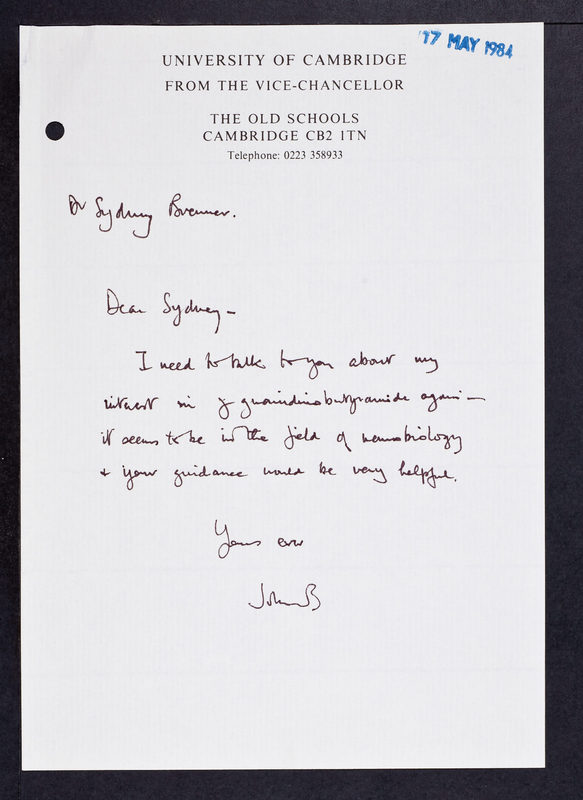 17 MAY 1984
UNIVERSITY OF CAMBRIDGE
FROM THE VICE-CHANCELLOR
THE OLD SCHOOLS
CAMBRIDGE CB2 1TN
Telephone: 0223 358933
Dr Sydney Brenner.
Dear Sydney –
I need to talk to you about my
interest in γ guanidinobutyramide again –
it seems to be in the field of neurobiology
+ your guidance would be very helpful.
Yours ever
John B